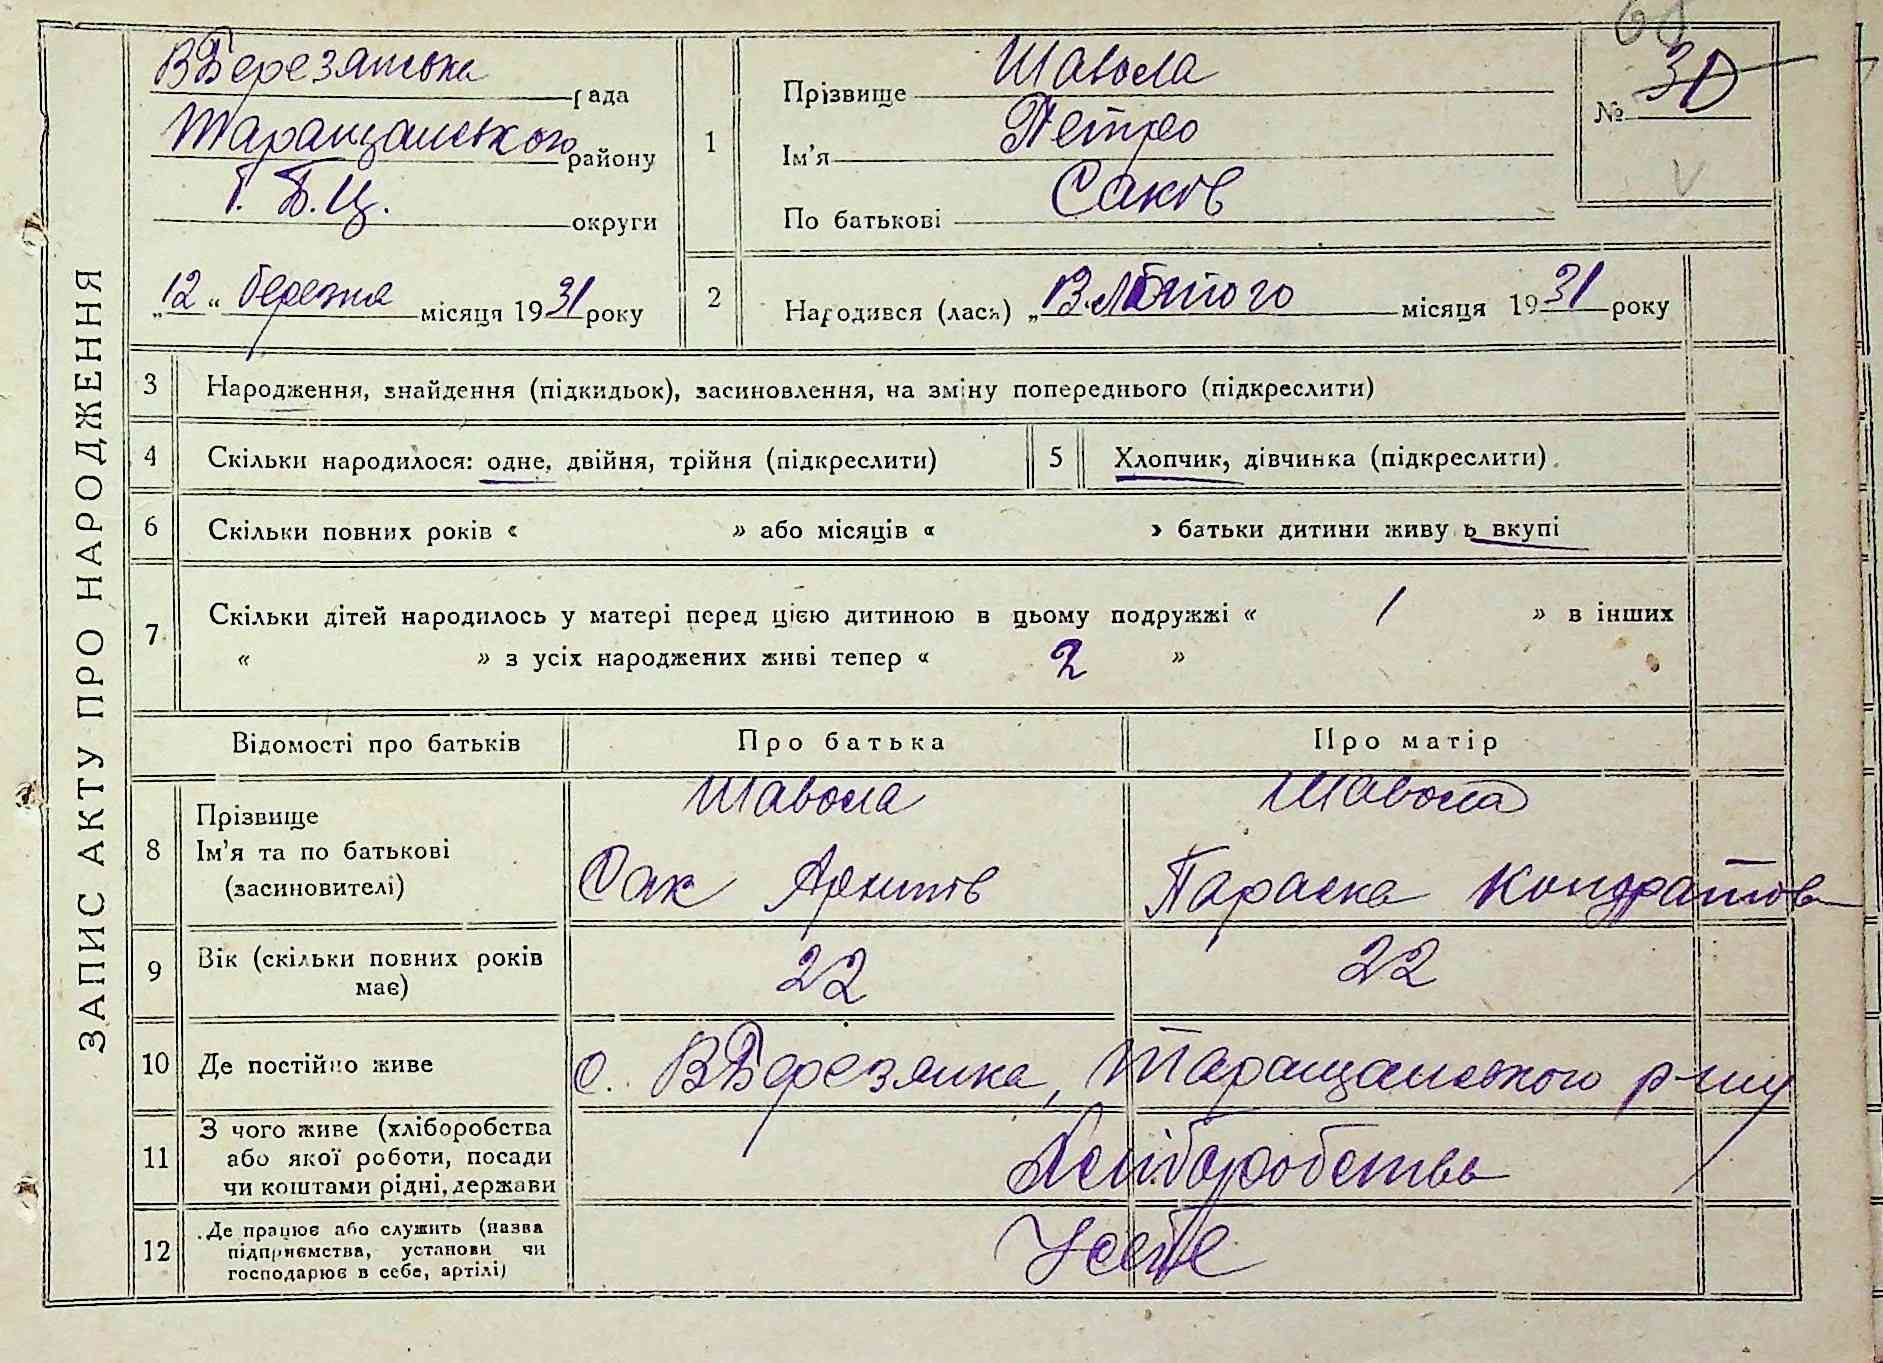 ЗАПИС АКТУ ПРО НАРОДЖЕННЯ
ВБерезянська рада
Таращанського району
Г. Б.Ц. округи
„12“ березня місяця 1931 року
№ 30
1
Прізвище Шавола
Ім'я Петро
По батькові Саків
2
Народився (лася) „13 лютого місяця 1931 року
3 Народження, знайдення (підкидьок), засиновлення, на зміну попереднього (підкреслити)
4 Скільки народилося: одне, двійня, трійня (підкреслити)
5 Хлопчик, дівчинка (підкреслити).
6 Скільки повних років « » або місяців « » батьки дитини живуть вкупі
7 Скільки дітей народилось у матері перед цією дитиною в цьому подружжі « 1 » в інших
« » з усіх народжених живі тепер « 2 »
Відомості про батьків Про батька Про матір
8 Прізвище Шавола Шавола
Ім'я та по батькові Сак Архипів Параска Кондратова
(засиновителі)
9 Вік (скільки повних років має) 22 22
10 Де постійно живе с. ВБерезянка, Таращанського р-ну
11 З чого живе (хліборобства
або якої роботи, посади
чи коштами рідні, держави
Хліборобства
12 Де працює або служить (назва
підприємства, установи чи
господарює в себе, артілі)
У себе